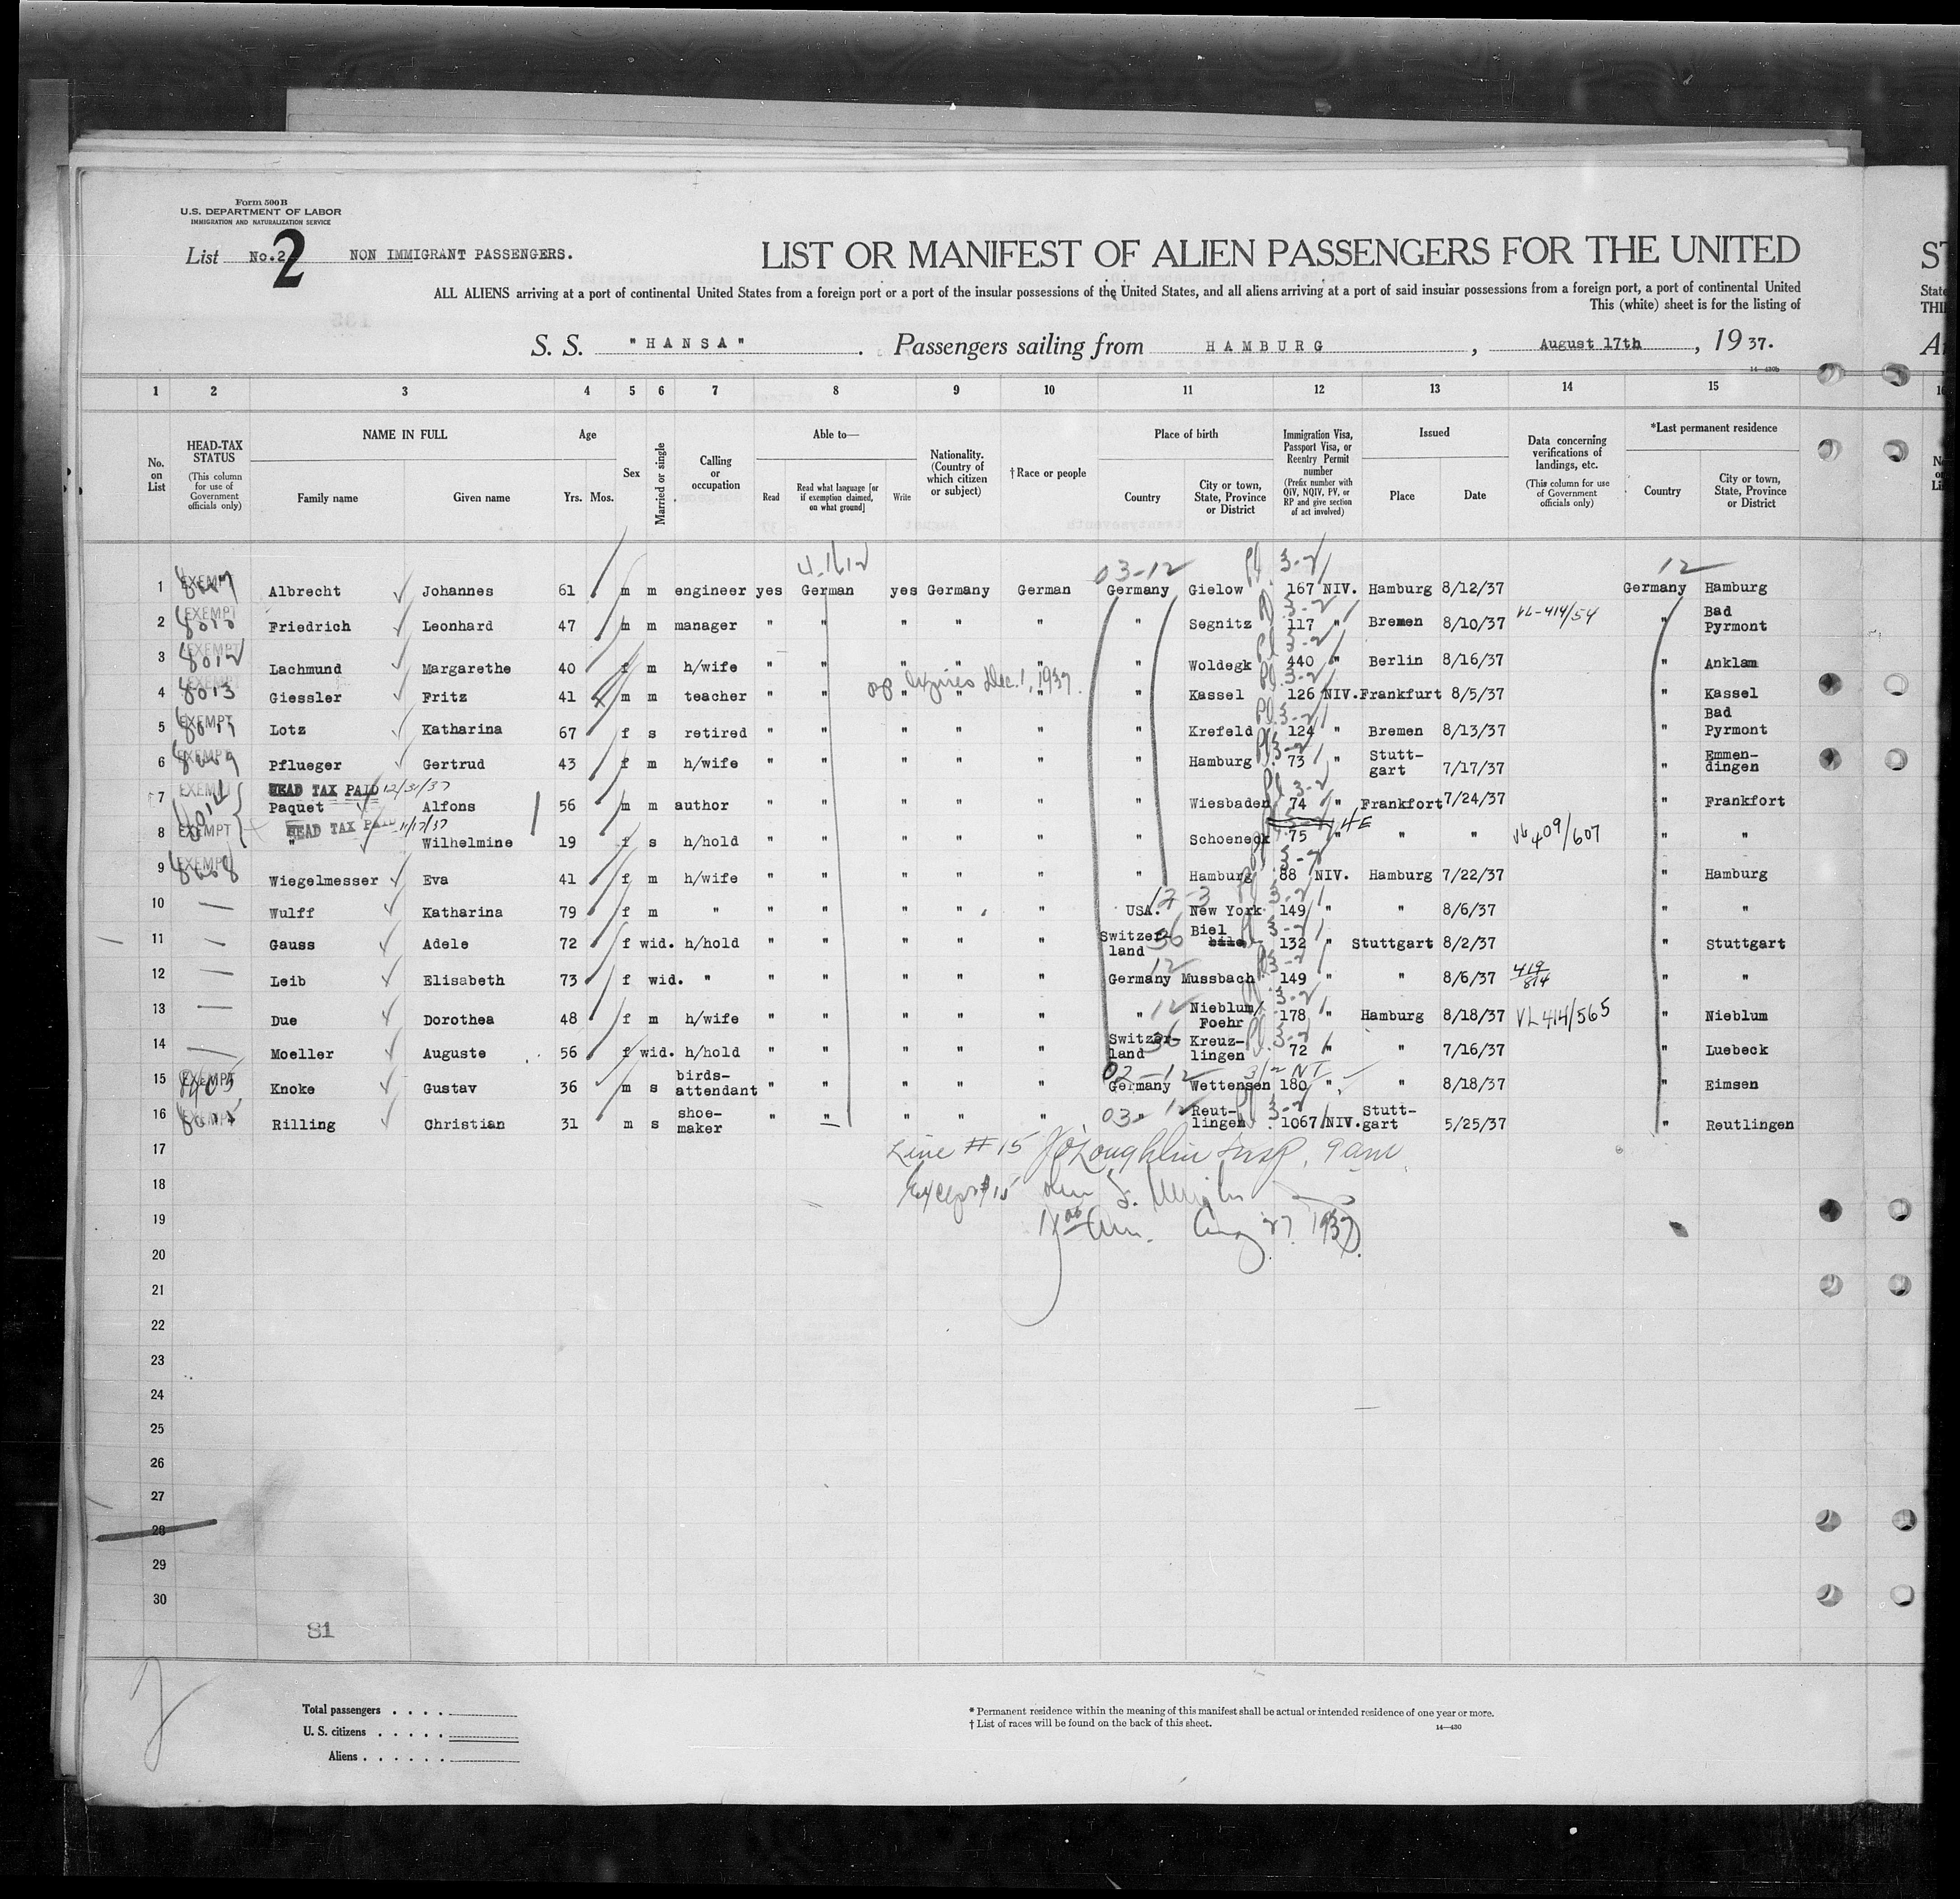 Form 500 B
U.S. DEPARTMENT OF LABOR
IMMIGRATION AND NATURALIZATION SERVICE
List No.2 2 NON IMMIGRANT PASSENGERS.
LIST OR MANIFEST OF ALIEN PASSENGERS FOR THE UNITED
ALL ALIENS arriving at a port of continental United States from a foreign port or a port of the insular possessions of the United States, and all aliens arriving at a port of said insular possessions from a foreign port, a port of continental United
This (white) sheet is for the listing of
S. S. "HANSA" . Passengers sailing from HAMBURG , August 17th , 19 37.
14—430b
1 2 3 4 5 6 7 8 9 10 11 12 13 14 15
No. on List
HEAD-TAX STATUS (This column for use of Government officials only)
NAME IN FULL Family name Given name
Age Yrs. Mos.
Sex
Married or single
Calling or occupation
Able to— Read Read what language [or if exemption claimed, on what ground] Write
Nationality. (Country of which citizen or subject)
†Race or people
Place of birth Country City or town, State, Province or District
Immigration Visa, Passport Visa, or Reentry Permit number (Prefix number with QIV, NQIV, PV, or RP and give section of act involved)
Issued Place Date
Data concerning verifications of landings, etc. (This column for use of Government officials only)
*Last permanent residence Country City or town, State, Province or District
03-12 3-2 12
1 EXEMPT Albrecht Johannes 61 m m engineer yes German yes Germany German Germany Gielow 167 NIV. Hamburg 8/12/37 Germany Hamburg
2 EXEMPT Friedrich Leonhard 47 m m manager " " " " " " Segnitz 117 " Bremen 8/10/37 VL-414/54 " Bad Pyrmont
3 EXEMPT 8012 Lachmund Margarethe 40 f m h/wife " " " " " " Woldegk 440 " Berlin 8/16/37 " Anklam
pp Expires Dec. 1, 1937.
4 EXEMPT 8013 Giessler Fritz 41 m m teacher " " " " " " Kassel 126 NIV. Frankfurt 8/5/37 " Kassel
5 EXEMPT Lotz Katharina 67 f s retired " " " " " " Krefeld 124 " Bremen 8/13/37 " Bad Pyrmont
6 EXEMPT Pflueger Gertrud 43 f m h/wife " " " " " " Hamburg 73 " Stutt-gart 7/17/37 " Emmen-dingen
HEAD TAX PAID 12/31/37
7 EXEMPT Paquet Alfons 56 m m author " " " " " " Wiesbaden 74 " Frankfort 7/24/37 " Frankfort
HEAD TAX PAID 11/17/37
8 EXEMPT " Wilhelmine 19 f s h/hold " " " " " " Schoeneck 75 " " " VL 409/607 " "
9 EXEMPT Wiegelmesser Eva 41 f m h/wife " " " " " " Hamburg 88 NIV. Hamburg 7/22/37 " Hamburg
10 — Wulff Katharina 79 f m " " " " " " USA. New York 149 " " 8/6/37 " "
11 — Gauss Adele 72 f wid. h/hold " " " " " Switzer-land 36 Biel 132 " Stuttgart 8/2/37 " Stuttgart
12 — Leib Elisabeth 73 f wid. " " " " " " Germany 12 Mussbach 149 " " 8/6/37 419/814 " "
13 — Due Dorothea 48 f m h/wife " " " " " " 12 Nieblum/Foehr 178 " Hamburg 8/18/37 VL 414/565 " Nieblum
14 — Moeller Auguste 56 f wid. h/hold " " " " " Switzer-land 36 Kreuz-lingen 72 " " 7/16/37 " Luebeck
15 EXEMPT Knoke Gustav 36 m s birds-attendant " " " " " Germany Wettensen 180 " " 8/18/37 " Eimsen
16 EXEMPT Rilling Christian 31 m s shoe-maker " " " " " " Reut-lingen 1067 NIV. Stutt-gart 5/25/37 " Reutlingen
17 Line #15 J O'Loughlin Insp. 9am
18 Except #15
19 Aug 27. 1937
20
21
22
23
24
25
26
27
28
29
30
81
2
Total passengers
U. S. citizens
Aliens
* Permanent residence within the meaning of this manifest shall be actual or intended residence of one year or more.
† List of races will be found on the back of this sheet.
14—430